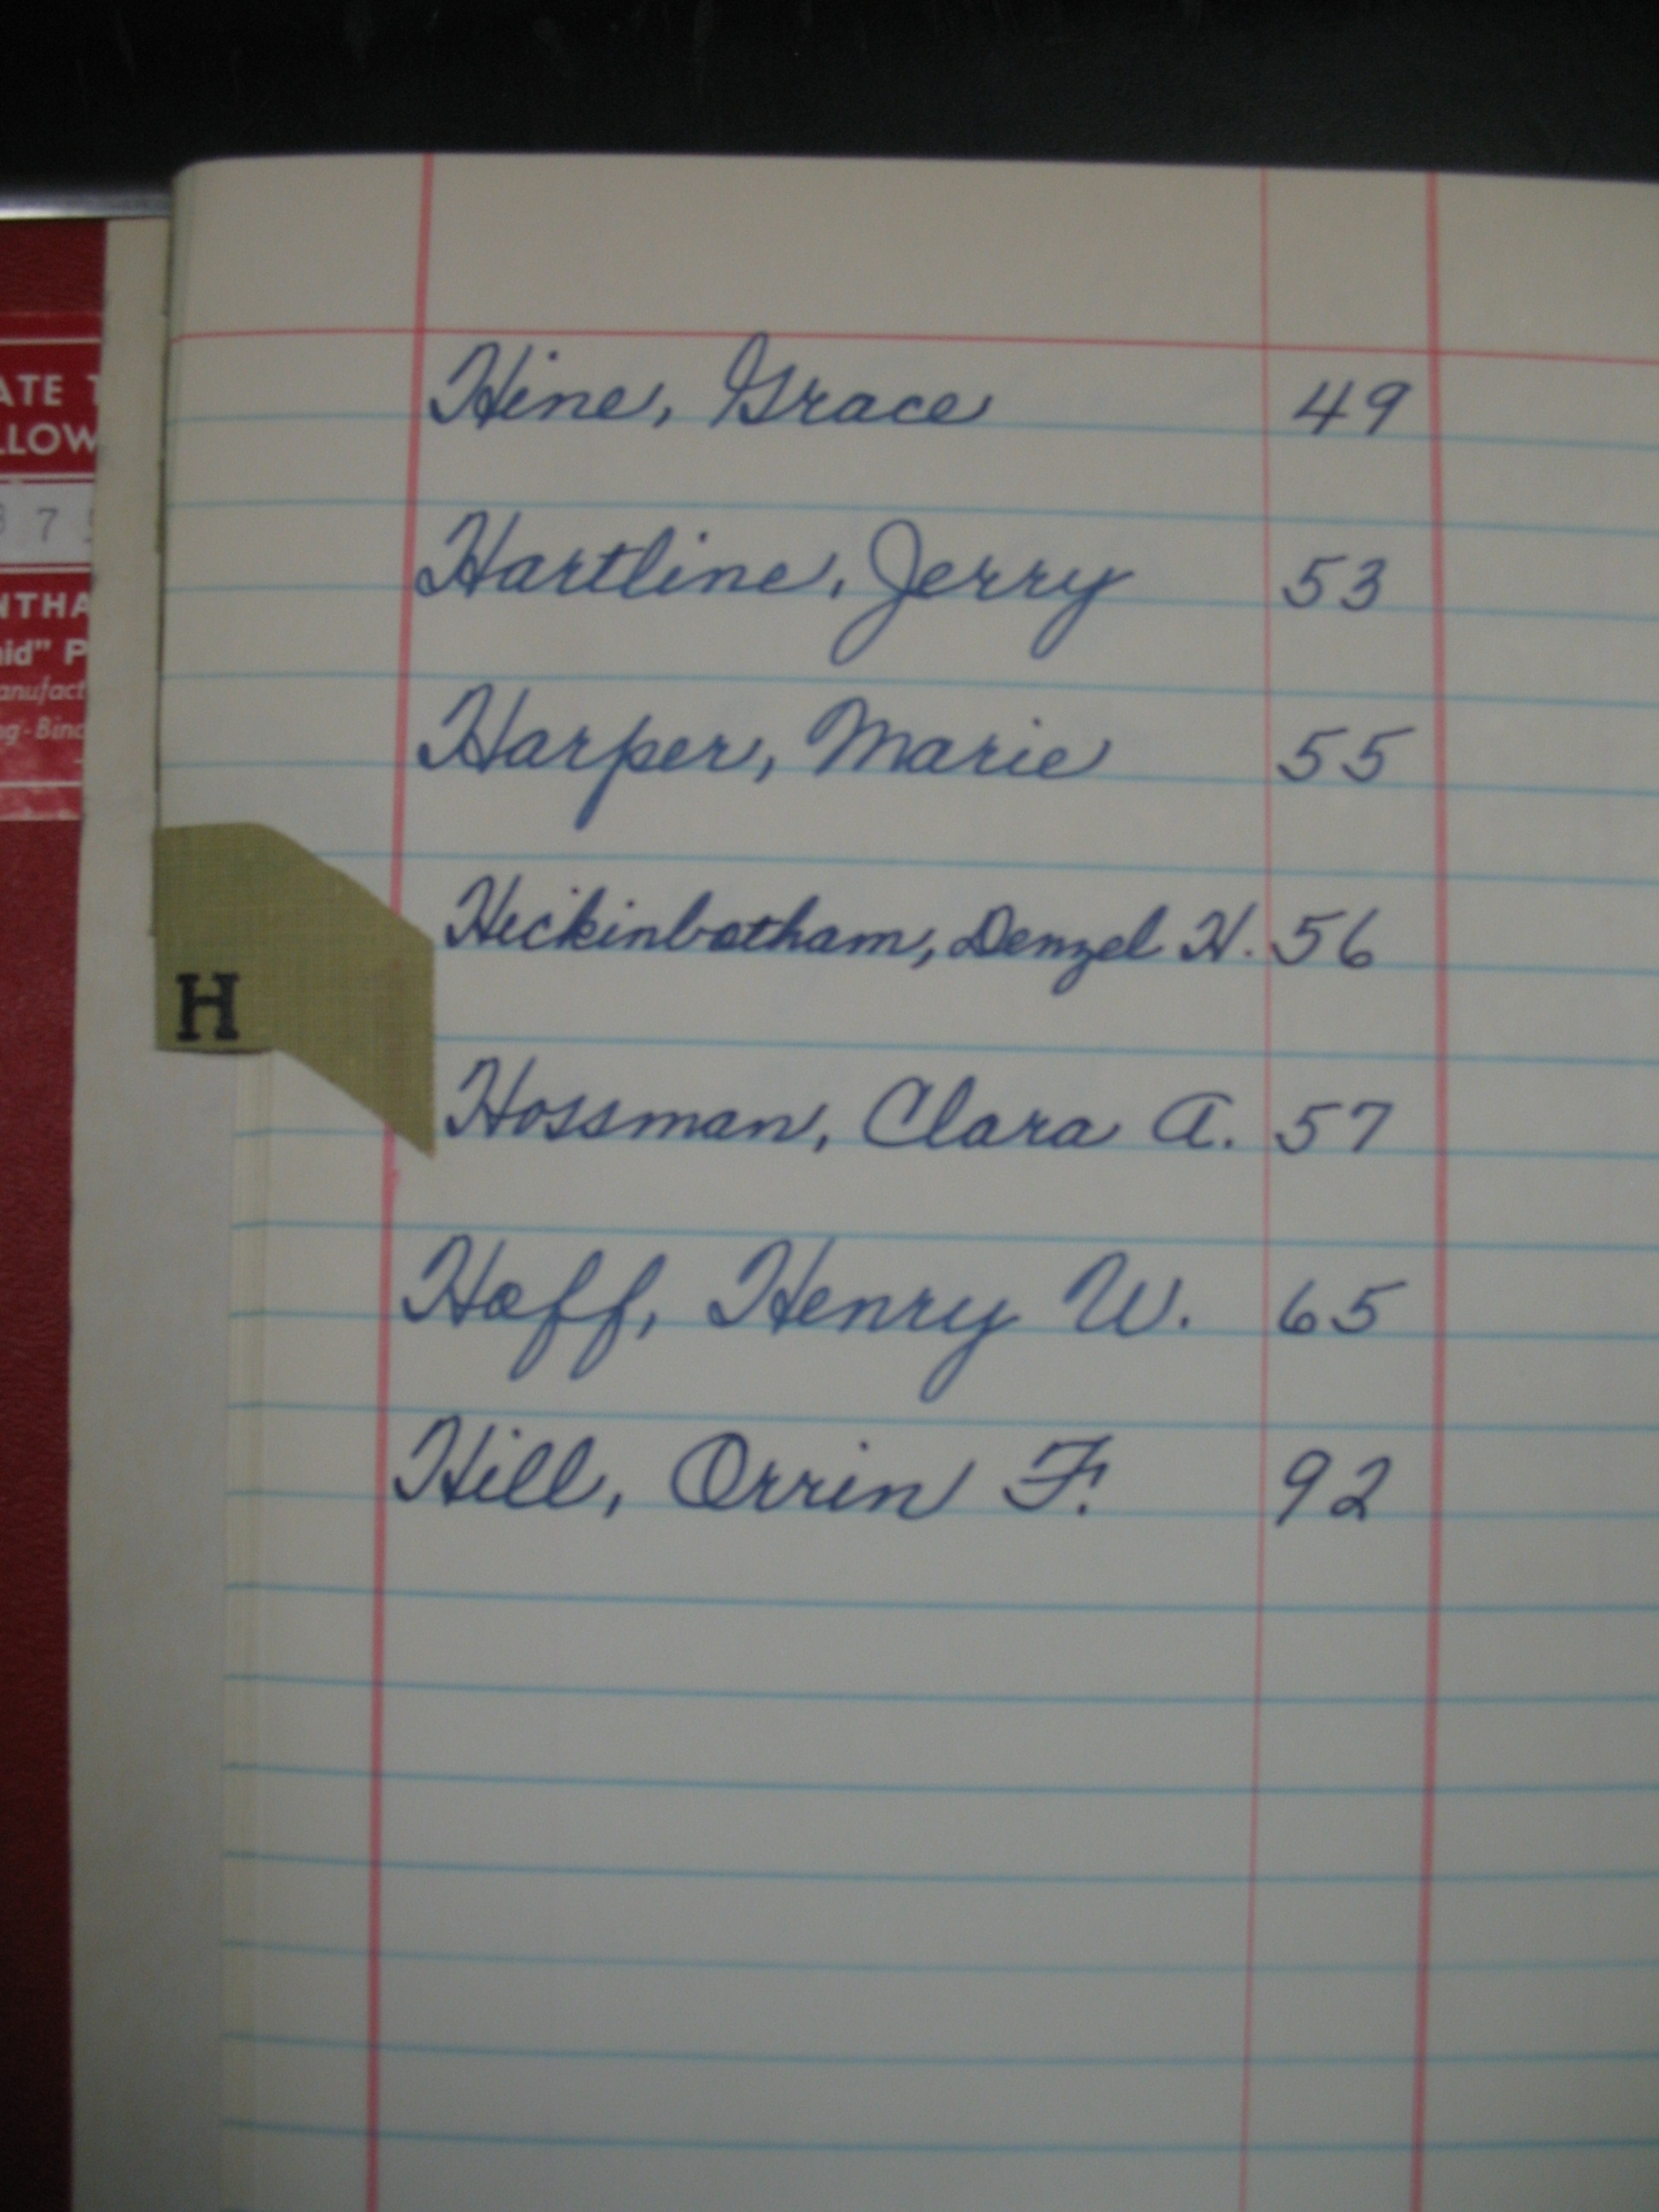 ATE T
LLOW
3 7 5
NTHA
aid" P
anufact
ng-Bind
Hine, Grace 49
Hartline, Jerry 53
Harper, Marie 55
Heckinbotham, Denzel H. 56
H
Hossman, Clara A. 57
Hoff, Henry W. 65
Hill, Orrin F. 92